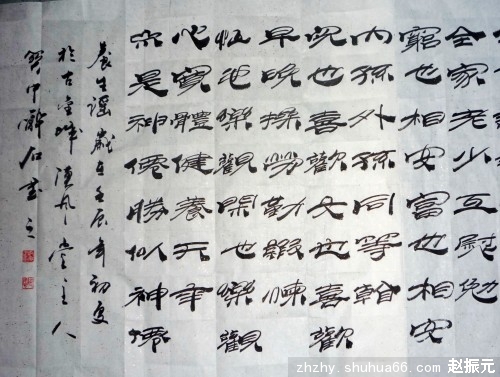 全家老少互慰勉
窮也相安富也相安
内孫外孫同等
兒也喜歡女也喜歡
早晚操勞勤鍛煉
忙也樂觀閑也樂觀
心寬體健養天年
亦是神僊勝似神僊
養生謡歲在壬辰年初夏
於古堂主人
石書之
zhzhy.shuhua66.com 赵振元